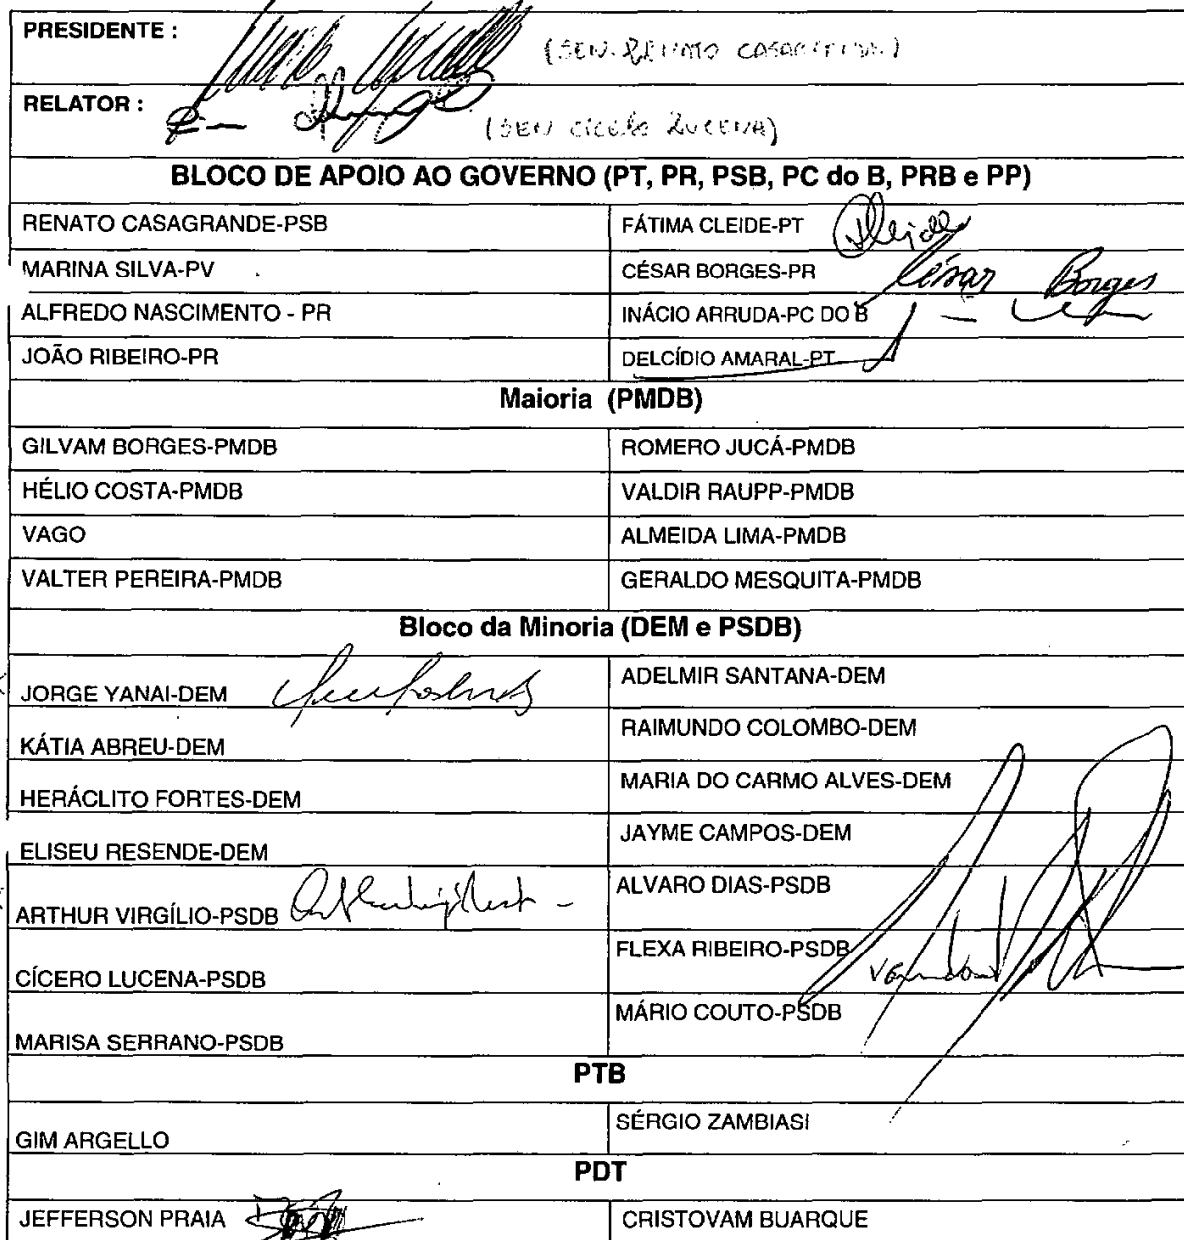 PRESIDENTE :
(SEN. RENATO CASAGRANDE)
RELATOR :
(SEN CICERO LUCENA)
BLOCO DE APOIO AO GOVERNO (PT, PR, PSB, PC do B, PRB e PP)
RENATO CASAGRANDE-PSB
FÁTIMA CLEIDE-PT
MARINA SILVA-PV
CÉSAR BORGES-PR
César Borges
ALFREDO NASCIMENTO - PR
INÁCIO ARRUDA-PC DO B
JOÃO RIBEIRO-PR
DELCÍDIO AMARAL-PT
Maioria (PMDB)
GILVAM BORGES-PMDB
ROMERO JUCÁ-PMDB
HÉLIO COSTA-PMDB
VALDIR RAUPP-PMDB
VAGO
ALMEIDA LIMA-PMDB
VALTER PEREIRA-PMDB
GERALDO MESQUITA-PMDB
Bloco da Minoria (DEM e PSDB)
JORGE YANAI-DEM
ADELMIR SANTANA-DEM
KÁTIA ABREU-DEM
RAIMUNDO COLOMBO-DEM
HERÁCLITO FORTES-DEM
MARIA DO CARMO ALVES-DEM
ELISEU RESENDE-DEM
JAYME CAMPOS-DEM
ARTHUR VIRGÍLIO-PSDB
ALVARO DIAS-PSDB
CÍCERO LUCENA-PSDB
FLEXA RIBEIRO-PSDB
MARISA SERRANO-PSDB
MÁRIO COUTO-PSDB
PTB
GIM ARGELLO
SÉRGIO ZAMBIASI
PDT
JEFFERSON PRAIA
CRISTOVAM BUARQUE